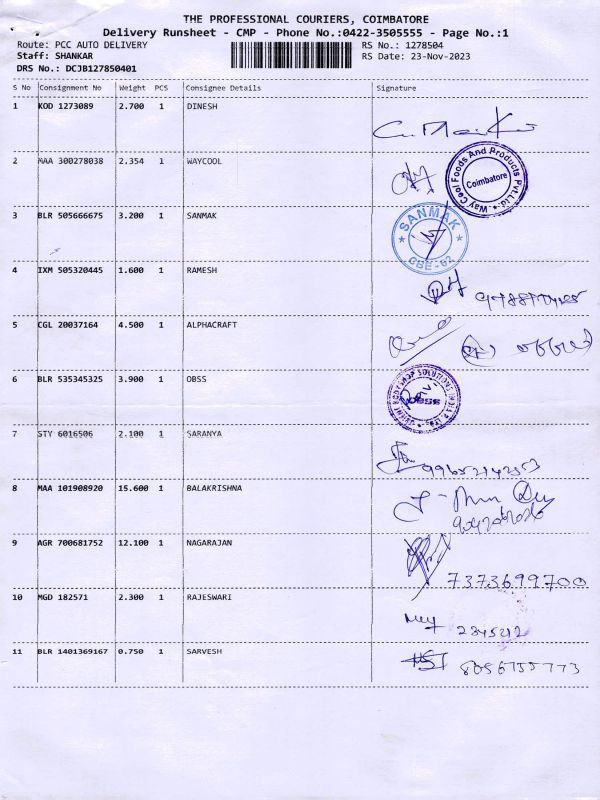 THE PROFESSIONAL COURIERS, COIMBATORE
Delivery Runsheet - CMP - Phone No.:0422-3505555 - Page No.:1
Route: PCC AUTO DELIVERY RS No.: 1278504
Staff: SHANKAR RS Date: 23-Nov-2023
DRS No.: DCJB127850401
S No Consignment No Weight PCS Consignee Details Signature
1 KOD 1273089 2.700 1 DINESH
2 MAA 300278038 2.354 1 WAYCOOL
Way Cool Foods And Products Pvt.Ltd.
Coimbatore
3 BLR 505666675 3.200 1 SANMAK
SANMAK
CBE-62
4 IXM 505320445 1.600 1 RAMESH
5 CGL 20037164 4.500 1 ALPHACRAFT
6 BLR 535345325 3.900 1 OBSS
OBSS
7 STY 6016506 2.100 1 SARANYA
8 MAA 101908920 15.600 1 BALAKRISHNA
9 AGR 700681752 12.100 1 NAGARAJAN
7373699700
10 MGD 182571 2.300 1 RAJESWARI
11 BLR 1401369167 0.750 1 SARVESH